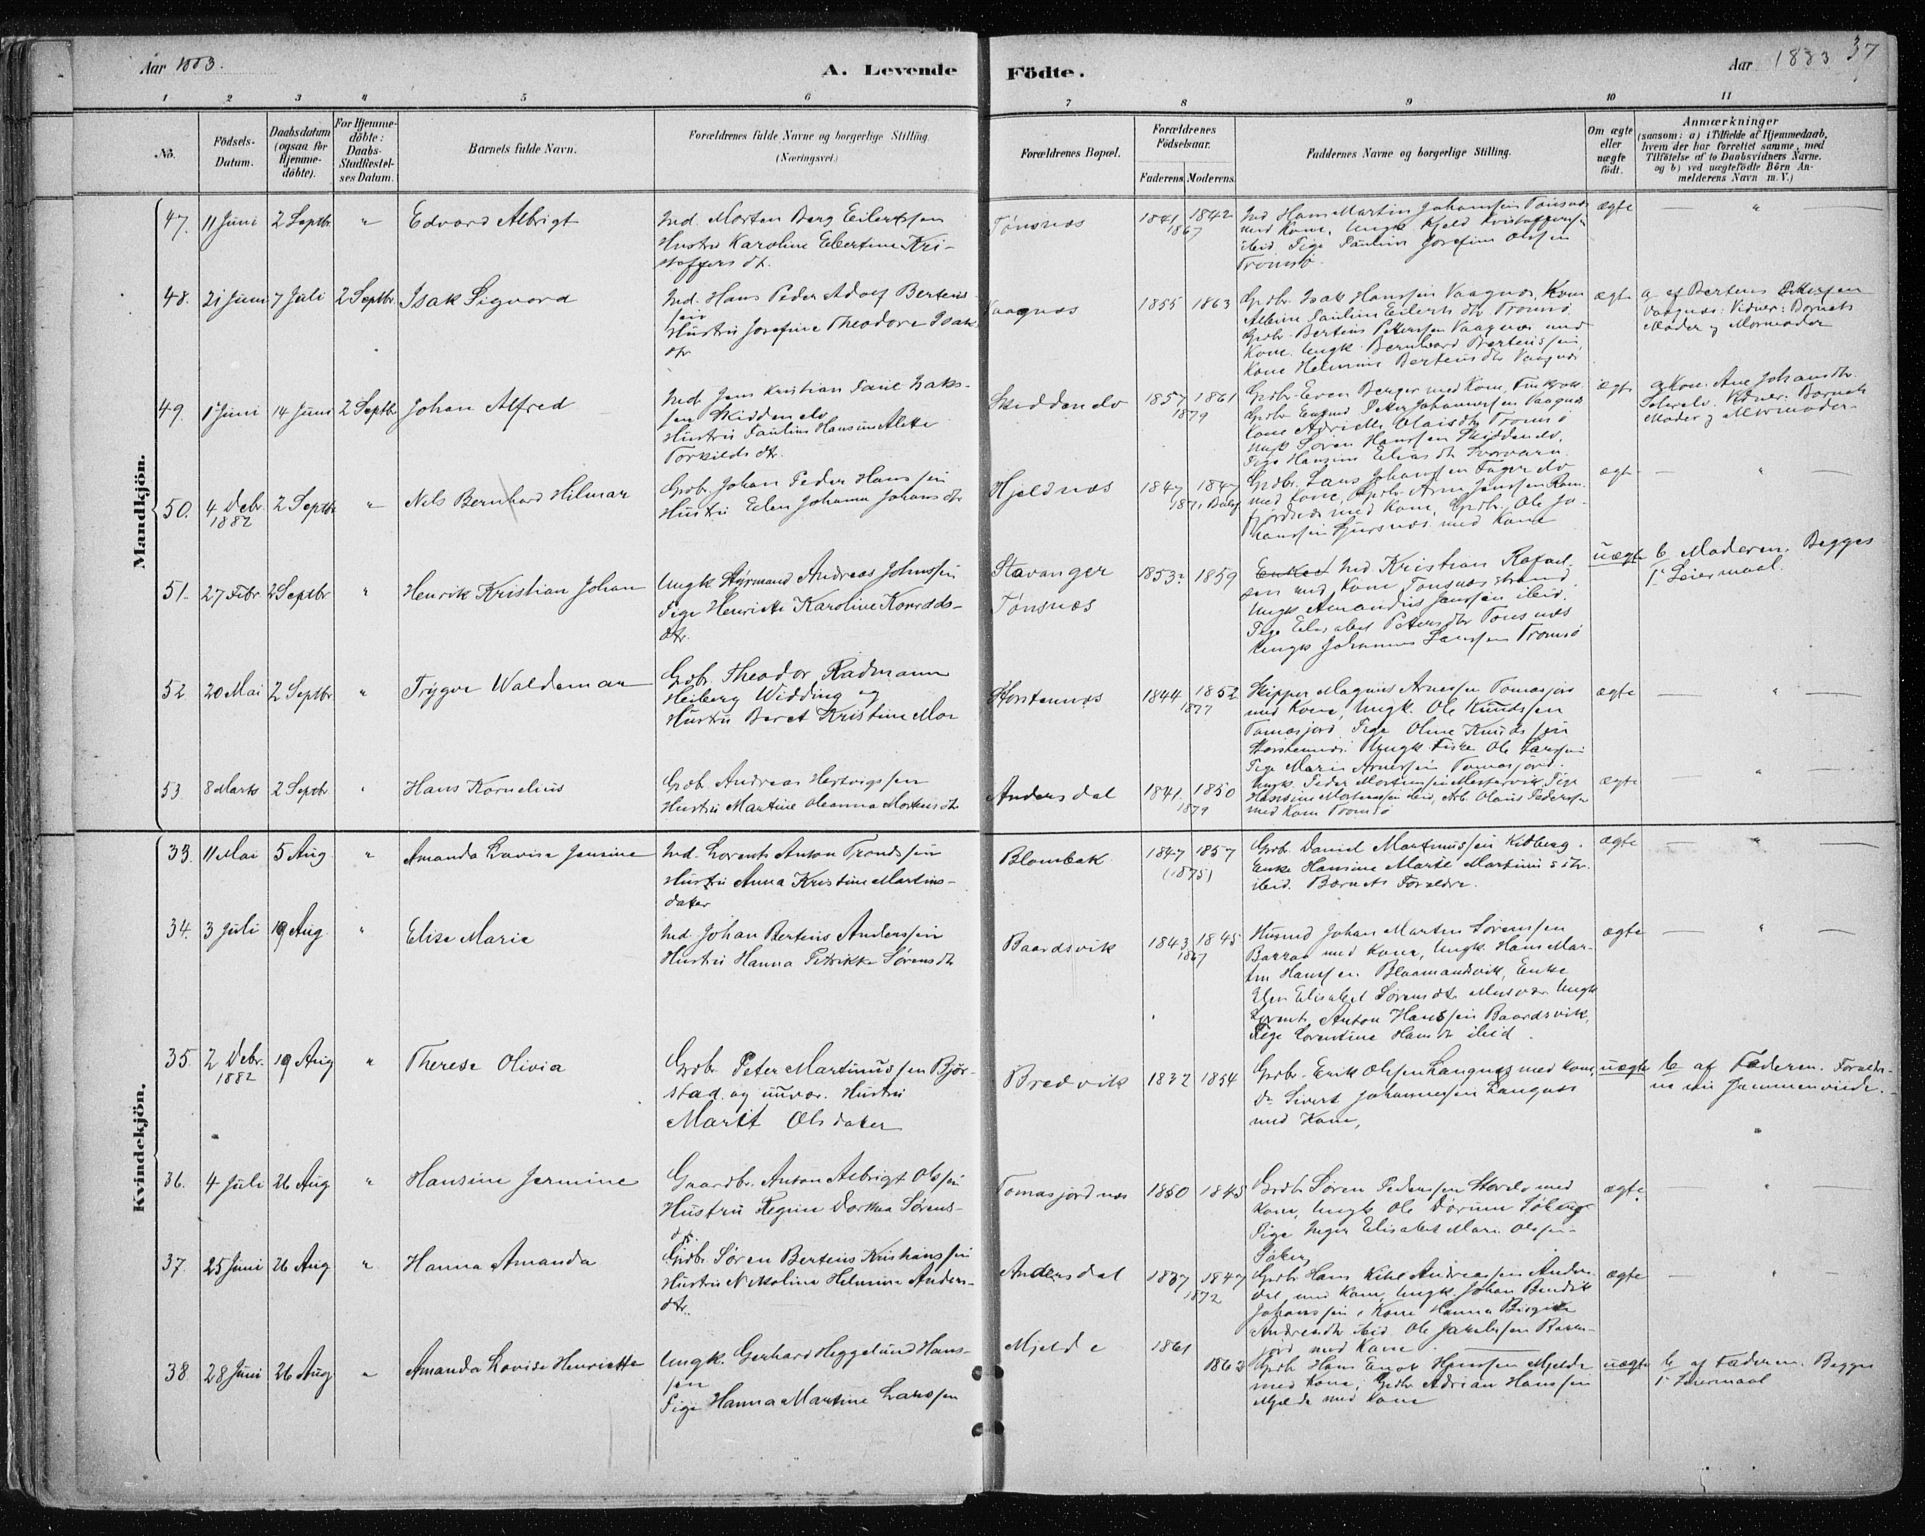 Aar 1883.
A. Levende Födte.
Aar 1883 37
1 2 3 4 5 6 7 8 9 10 11
No.
Födsels-Datum.
Daabsdatum (ogsaa for Hjemmedöbte).
For Hjemmedöbte: Daabs-Stadfestelses Datum.
Barnets fulde Navn.
Forældrenes fulde Navne og borgerlige Stilling.
(Næringsvei.)
Forældrenes Bopæl.
Forældrenes Födselsaar.
Faderens. Moderens.
Faddernes Navne og borgerlige Stilling.
Om ægte eller uægte födt.
Anmærkninger
(saasom: a) i Tilfælde af Hjemmedaab,
hvem der har forrettet samme, med
Tilföielse af to Daabsvidners Navne.
og b) ved uægtefödte Börn Anmelderens Navn m. V.)
Mandkjön.
47. 11 Juni 2 Septbr. " Edvard Albrigt
Ind. Morten Berg Eilertssen
Hustru Karoline Elbertine Kri-
stoffersdt.
Tønsnæs 1841 1842
1867
Ind Hans Martin Johanssen Tønsnæs
med Kone, Ungk Kjeld Kristoffersen
ibid Pige Pauline Josefine Olsen
Tromsø.
ægte — " —
48. 21 Juni 7 Juli 2 Septbr. Isak Sigvard
Ind. Hans Peder Adolf Bertens-
sen
Hustru Josefine Theodore Isaks
dtr
Vaagnæs 1855 1863
Grdbr. Isak Hanssen Vaagnæs, Kone
Albine Pauline Eilertsdtr Tromsø
Grdbr. Bertens Pettersen Vaagnæs med
Kone. Ungk. Bernhard Bertenssen,
Kone Helmine Bertensdtr Vaagnæs
ægte a af Bertens Pettersen
Vaagnæs. Vidner: Barnets
Moder og Mormoder
49. 1 Juni 14 Juni 2 Septbr Johan Alfred
Ind. Jens Kristian Paul Isaks-
sen Skiddenelv
Hustru Pauline Hansine Alette
Torkildsdtr.
Skiddenelv 1857 1861
1879
Grdbr Even Berger med Kone,
Grdbr. Enevind Peter Johannessen Vaagnæs
Kone Olaisdtr Tromsø
Ungk Søren Hanssen Skiddenelv,
Pige Hansine Eliasdtr
ægte a Kone Ane Johansdtr.
Vidner: Barnets
Moder og Mormoder.
50. 4 Debr. 1882 2 Septbr " Nils Bernhard Hilmar
Grdbr. Johan Peder Hanssen
Hustru Elen Johanna Johansdtr
Hjeldnæs 1847 1847
1871,
Grdbr. Lars Johanssen Fagerelv
med Kone, Grdbr. Arne Jenssen Ram-
fjordnæs med Kone, Grdbr. Ole Jo-
hanssen med Kone
ægte — " —
51. 27 Febr 2 Septbr " Henrik Kristian Johan
Ungk Styrmand Andreas Johnssen
Pige Henriette Karoline Konrads-
dtr.
Stavanger
Tønsnæs
1853? 1859
Ind Kristian Rafael-
sen med Kone Tønsnæsstrand,
Ungk Amandus Janssen ibid,
Pige Elisabet Petersdtr Tønsnæs
Ungk Johannes Larssen Tromsø
uægte b Moderen. Begges
1' Leiermaal.
52 20 Mai 2 Septbr " Trygve Waldemar
Grdbr. Theodor Radmann
Heiberg Widding og
Hustru Beret Kristine Moe
Storstennæs 1844 1852
1877
Skipper Magnus Arnessen Tomasjord
med Kone, Ungk. Ole Knudssen
Tomasjord, Pige Oline Knudssen
Storstennæs. Ungk. Ole Larssen
Pige Marie Arnessen Tomasjord.
ægte — " —
53 8 Marts 2 Septbr " Hans Kornelius
Grdb. Andreas Hertvigssen
Hustru Martine Oleanna Mortensdtr
Andersdal 1841 1850
1879
Ungk. Peder Mortenssen Mestervik Pige
Hansine Mortenssen ibid, Arb. Olaus Pederssen
med Kone Tromsø
ægte — " —
Kvindekjön.
33. 11 Mai 5 Aug " Amanda Lovise Jensine
Ind. Lorents Anton Trondssen
Hustru Anna Kristine Martins-
datter
Blombak 1847 1857
(1875)
Grdb. Daniel Martinussen Kidberg.
Enke Hansine Marie Martinusdtr.
ibid. Barnets Foreldre.
ægte — " —
34. 3 Juli 19 Aug " Elise Marie
Ind. Johan Bertens Anderssen
Hustru Hanna Petrikke Sørensdtr
Baardsvik 1843 1845
1867
Husmd Johan Martin Sørenssen
med Kone, Ungk. Hans Mar-
tin Hanssen Blaamandsvik, Enke
Elen Elisabet Sørensdtr Musvær Ungk
Lorents Anton Hanssen Baardsvik,
Pige Lorentine Hansdtr ibid.
ægte — " —
35 2 Debr. 1882 19 Aug " Therese Olivia
Grdbr. Peter Martinussen Bjør-
stad og Hustru
Marit Olsdatter
Bredvik 1832 1854
Grdbr. Erik Olssen Langnæs med Kone,
Do Sivert Johannessen Langnæs
med Kone,
uægte b af Faderen. Foreldre-
ne nu Sammenviede.
36. 4 Juli 26 Aug " Hansine Jermine
Gaardbr. Anton Albrigt Olssen
Hustru Regine Dorthea Sørens-
dtr.
Tomasjordnæs 1850 1845
Grdbr Søren Pederssen Storelv med
Kone, Ungk Ole
Pige Inger Elisabet Marie Olssen
ægte — " —
37. 25 Juni 26 Aug " Hanna Amanda
Grdbr Søren Bertens Kristianssen
Hustru Nikoline Helmine Anders-
dtr.
Andersdal 1837 1847
1872
Grdbr Hans Kihl Andreassen Anders-
dal med Kone, Ungk Johan Bendik
Johanssen, Kone Hanna Birgitte
Andreasdtr ibid Ole Jakobssen Ram-
fjord med Kone.
ægte — " —
38 28 Juni 26 Aug " Amanda Lovise Henriette
Ungk. Gerhard Heggelund Hans-
sen
Pige Hanna Martine Larssen
Mjelde 1861
1863
Grdb Hans Enok Hanssen Mjelde
med Kone, Grdbr Adrian Hanssen
Mjelde med Kone
uægte b af Faderen. Begges
1' Leiermaal